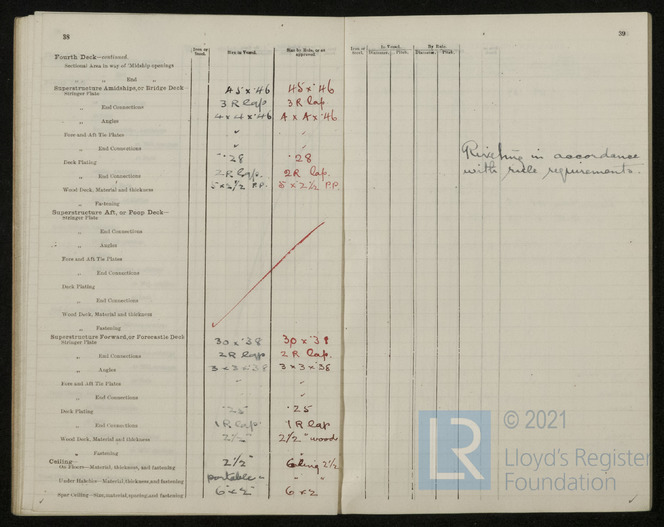 38
Iron or Steel. Size in Vessel. Size by Rule, or as approved.
Fourth Deck—continued.
Sectional Area in way of 'Midship openings
„ „ End „
Superstructure Amidships, or Bridge Deck—
Stringer Plate 45 x ·46 45 x ·46
„ End Connections 3 R lap 3 R lap.
„ Angles 4 x 4 x ·46 4 x 4 x ·46
Fore and Aft Tie Plates
„ End Connections
Deck Plating ·28 ·28
„ End Connections 2R lap. 2R lap.
Wood Deck, Material and thickness 5 x 2½ P.P. 5 x 2½ P.P.
„ Fastening
Superstructure Aft, or Poop Deck—
Stringer Plate
„ End Connections
„ Angles
Fore and Aft Tie Plates
„ End Connections
Deck Plating
„ End Connections
Wood Deck, Material and thickness
„ Fastening
Superstructure Forward, or Forecastle Deck
Stringer Plate 30 x ·38 30 x ·38
„ End Connections 2R lap 2R lap.
„ Angles 3 x 3 x ·38 3 x 3 x ·38
Fore and Aft Tie Plates
„ End Connections
Deck Plating ·25 ·25
„ End Connections 1R lap 1R lap
Wood Deck, Material and thickness 2½" 2½" wood
„ Fastening
Ceiling—
On Floors—Material, thickness, and fastening 2½" 2½
Under Hatches—Material, thickness, and fastening portable
Spar Ceiling—Size, material, spacing, and fastening 6 x 2 6 x 2
39
Iron or Steel. In Vessel. By Rule.
Diameter. Pitch. Diameter. Pitch.
Riveting in accordance
with rule requirements.
LR
© 2021
Lloyd's Register
Foundation